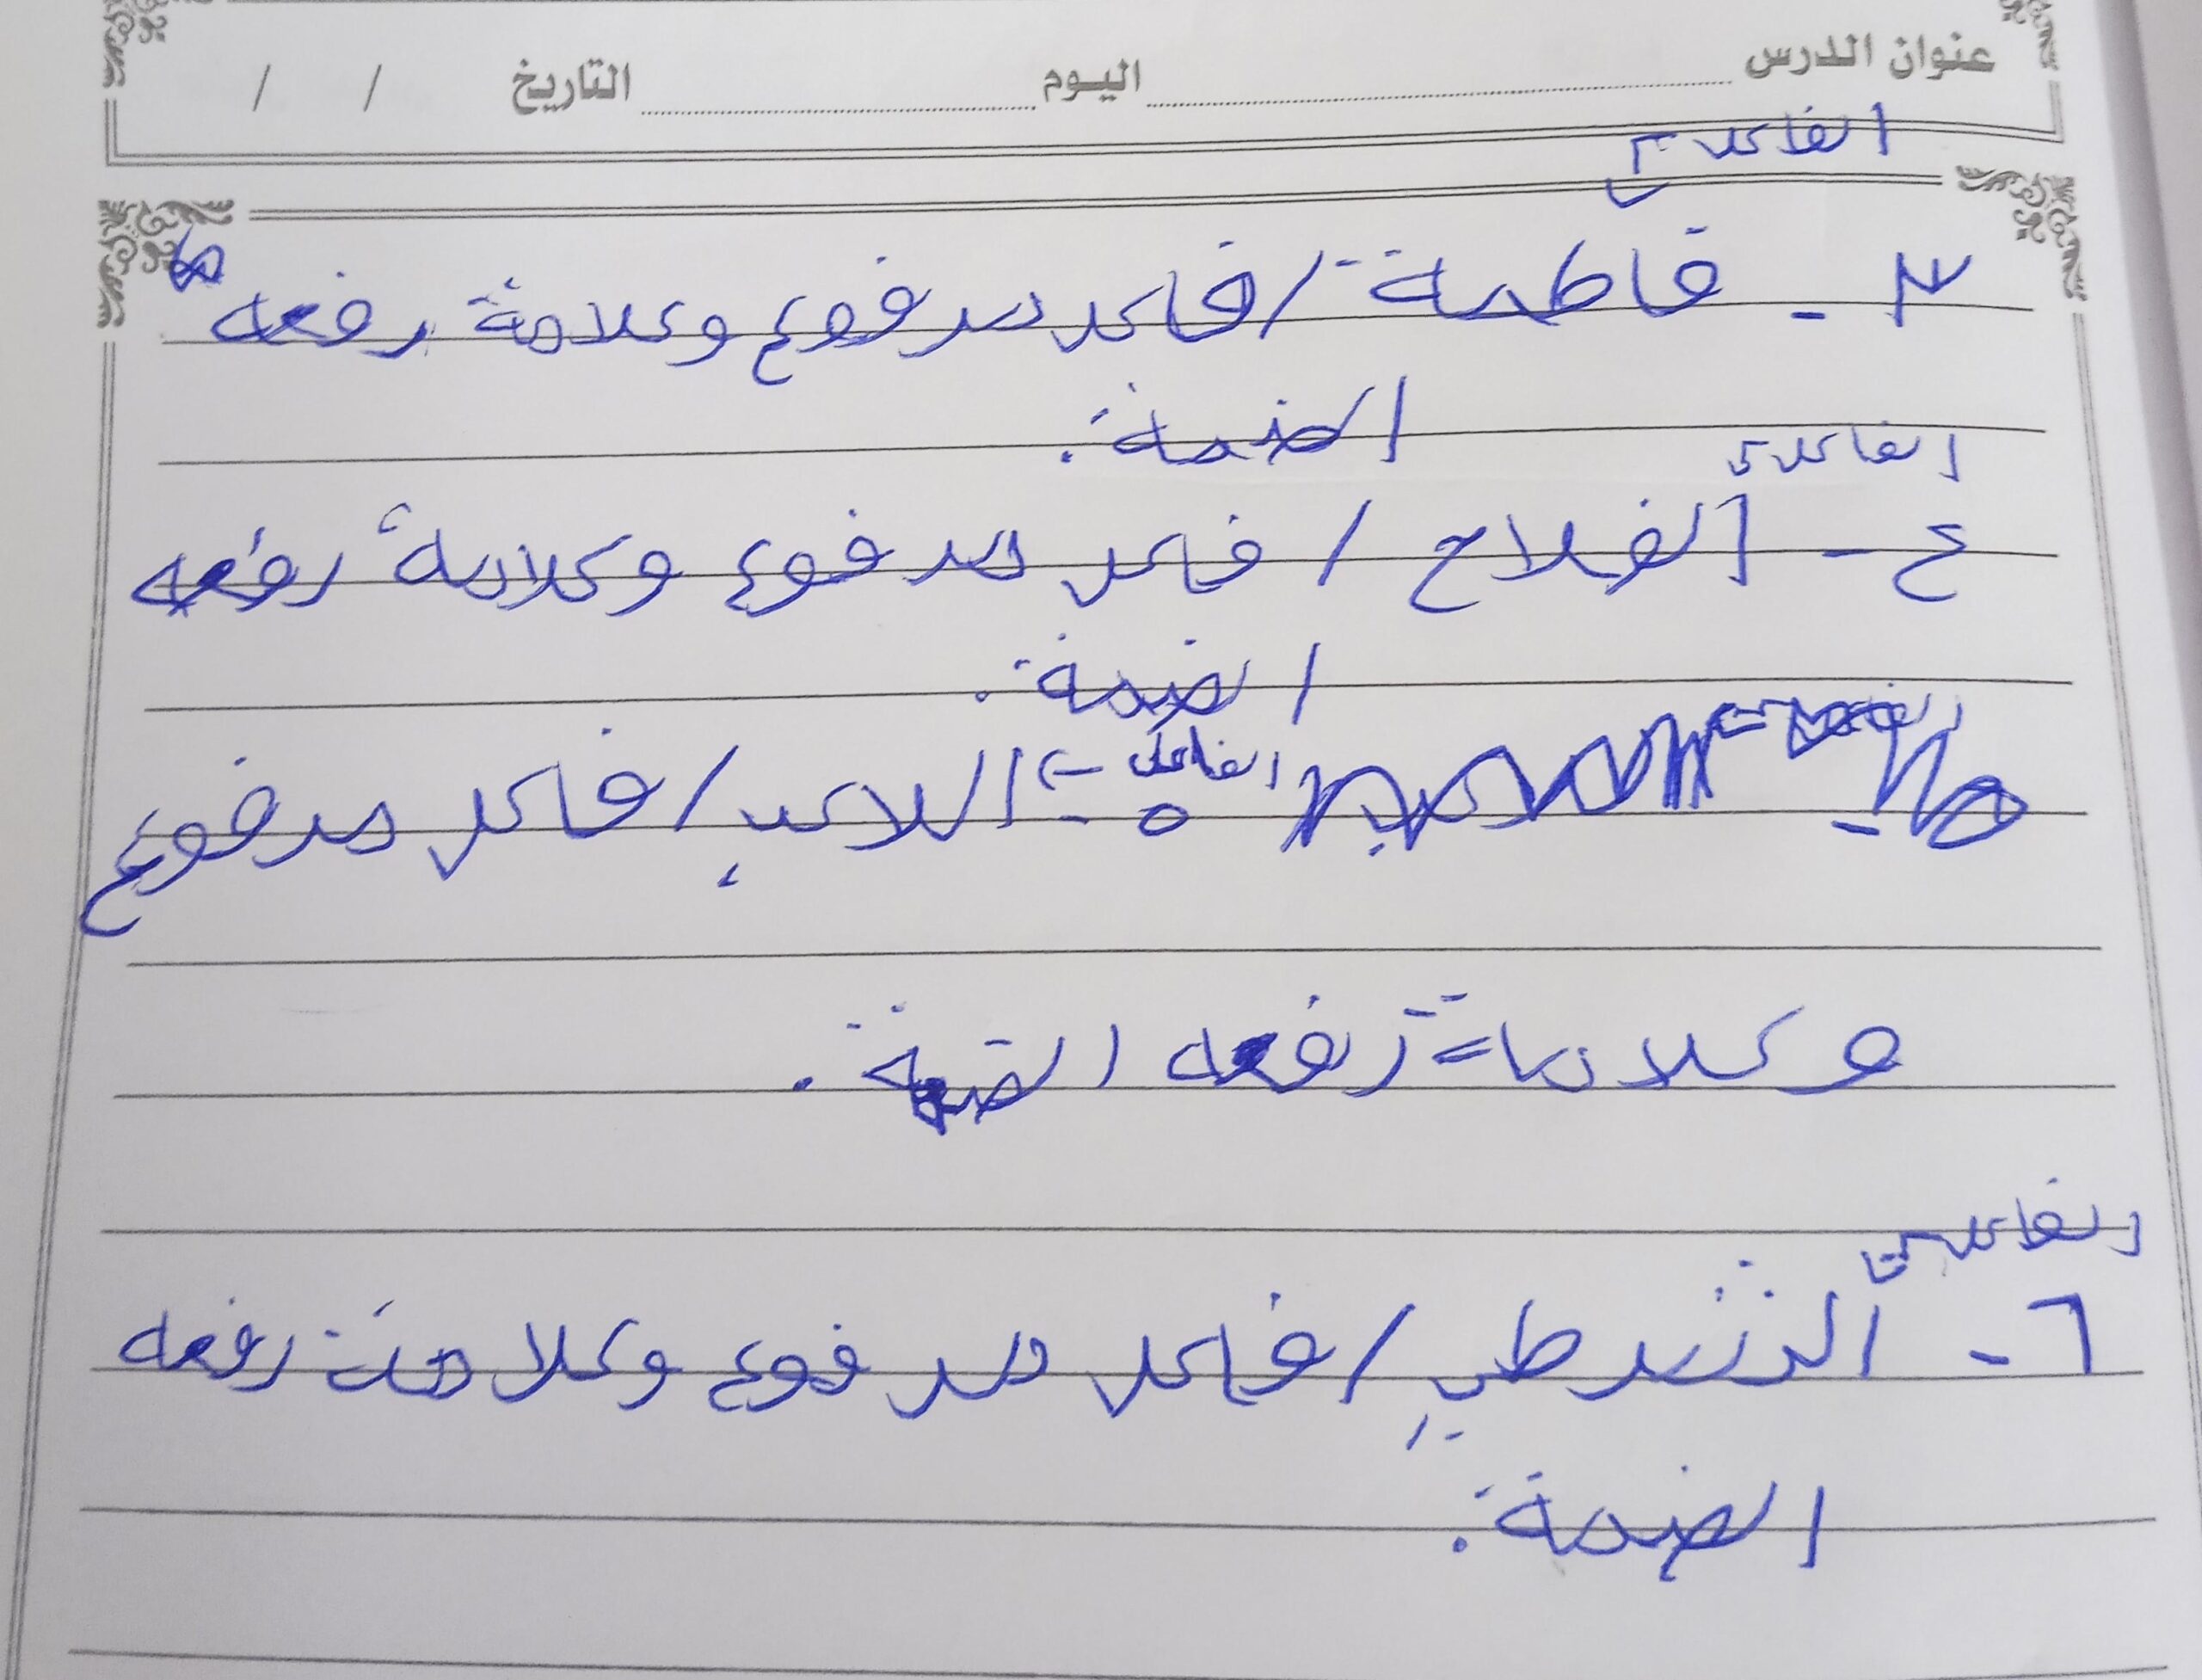 عنوان الدرس اليوم التاريخ / /
الفاعل
٣ - فاطمة / فاعل مرفوع وعلامة رفعه
الضمة.
الفاعل
٤ - الفلاح / فاعل مرفوع وعلامة رفعه
الضمة.
الفاعل
٥ - اللاعب / فاعل مرفوع
وعلامة رفعه الضمة.
الفاعل
٦ - الشرطي / فاعل مرفوع وعلامة رفعه
الضمة.